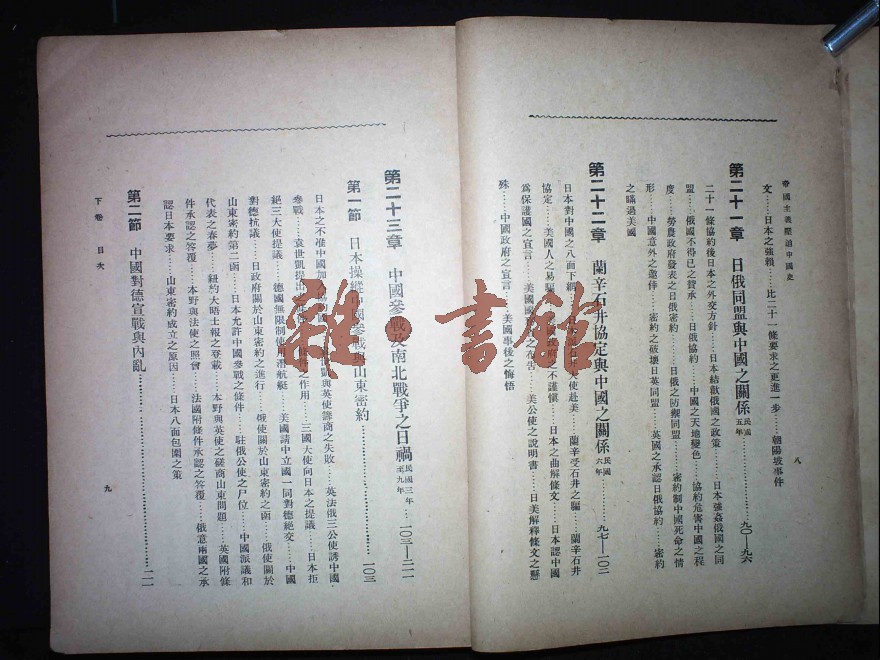 帝國主義壓迫中國史
八
文……日本之強賴……比二十一條要求之更進一步……朝陽坡事件
第二十一章 日俄同盟與中國之關係 民國五年…九〇—九六
二十一條協約後日本之外交方針……日本結歡俄國之政策……日本強姦俄國之同
盟……俄國不得已之贊承……日俄協約……中國之天地變色……協約危害中國之程
度……勞農政府發表之日俄密約……日俄之防禦同盟……密約制中國死命之情
形……中國意外之邀倖……密約之破壞日英同盟……英國之承認日俄協約……密約
之瞞過美國
第二十二章 蘭辛石井協定與中國之關係 民國六年…九七—一〇二
日本對中國之八面下網 使赴美……蘭辛受石井之騙……蘭辛石井
協定……美國人之易騙 國政府之不謹慎……日本之曲解條文……日本認中國
爲保護國之宣言……美國國 之布告……美公使之說明書……日美解釋條文之懸
殊……中國政府之宣言……美國事後之悔悟
第二十三章 中國參戰及南北戰爭之日禍 民國三年至九年…一〇三—二一一
第一節 日本操縱中國參戰與山東密約…………一〇三
日本之不准中國加 凱與英使籌商之失敗……英法俄三公使誘中國
參戰……袁世凱提出 之作用……三國大使向日本之提議……日本拒
絕三大使提議……德國無限制使用潛航艇……美國請中立國一同對德絕交……中國
對德抗議……日政府關於山東密約之進行……俄使關於山東密約之函……俄使關於
山東密約第二函……日本允許中國參戰之條件……駐俄公使之尸位……中國派議和
代表之春夢……紐約大晤士報之登載……本野與英使之磋商山東問題……英國附條
件承認之答覆……本野與法使之照會……法國附條件承認之答覆……俄意兩國之承
認日本要求……山東密約成立之原因……日本八面包圍之策
第二節 中國對德宣戰與內亂…………一二一
下卷 目次
九
雜·書館